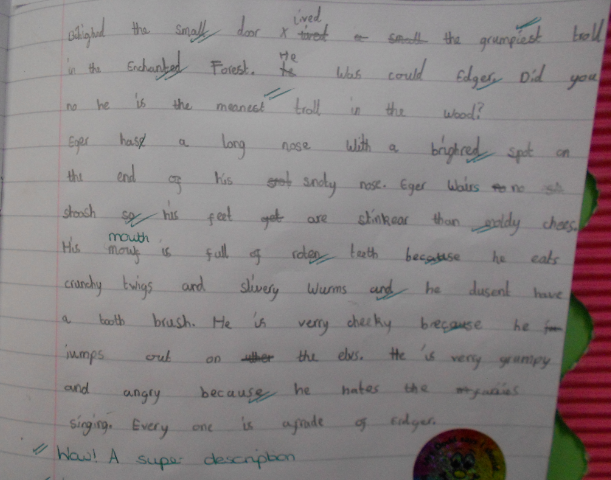 the small door x lived the grumpiest troll
in the Enchanted Forest. He was could Edger. Did you
no he is the meanest troll in the wood?
Eger has a long nose with a brighred spot on
the end of his snoty nose. Eger wairs no
so his feet are stinkear than moldy chees.
His mouth is full of roten teeth because he eats
cranchy twigs and slivery wurms and he dusent have
a tooth brush. He is verry cheeky because he
jumps out on the elvs. He is very grumpy
and angry because he hates the faries
singing. Every one is afrade of Edger.
Wow! A super description